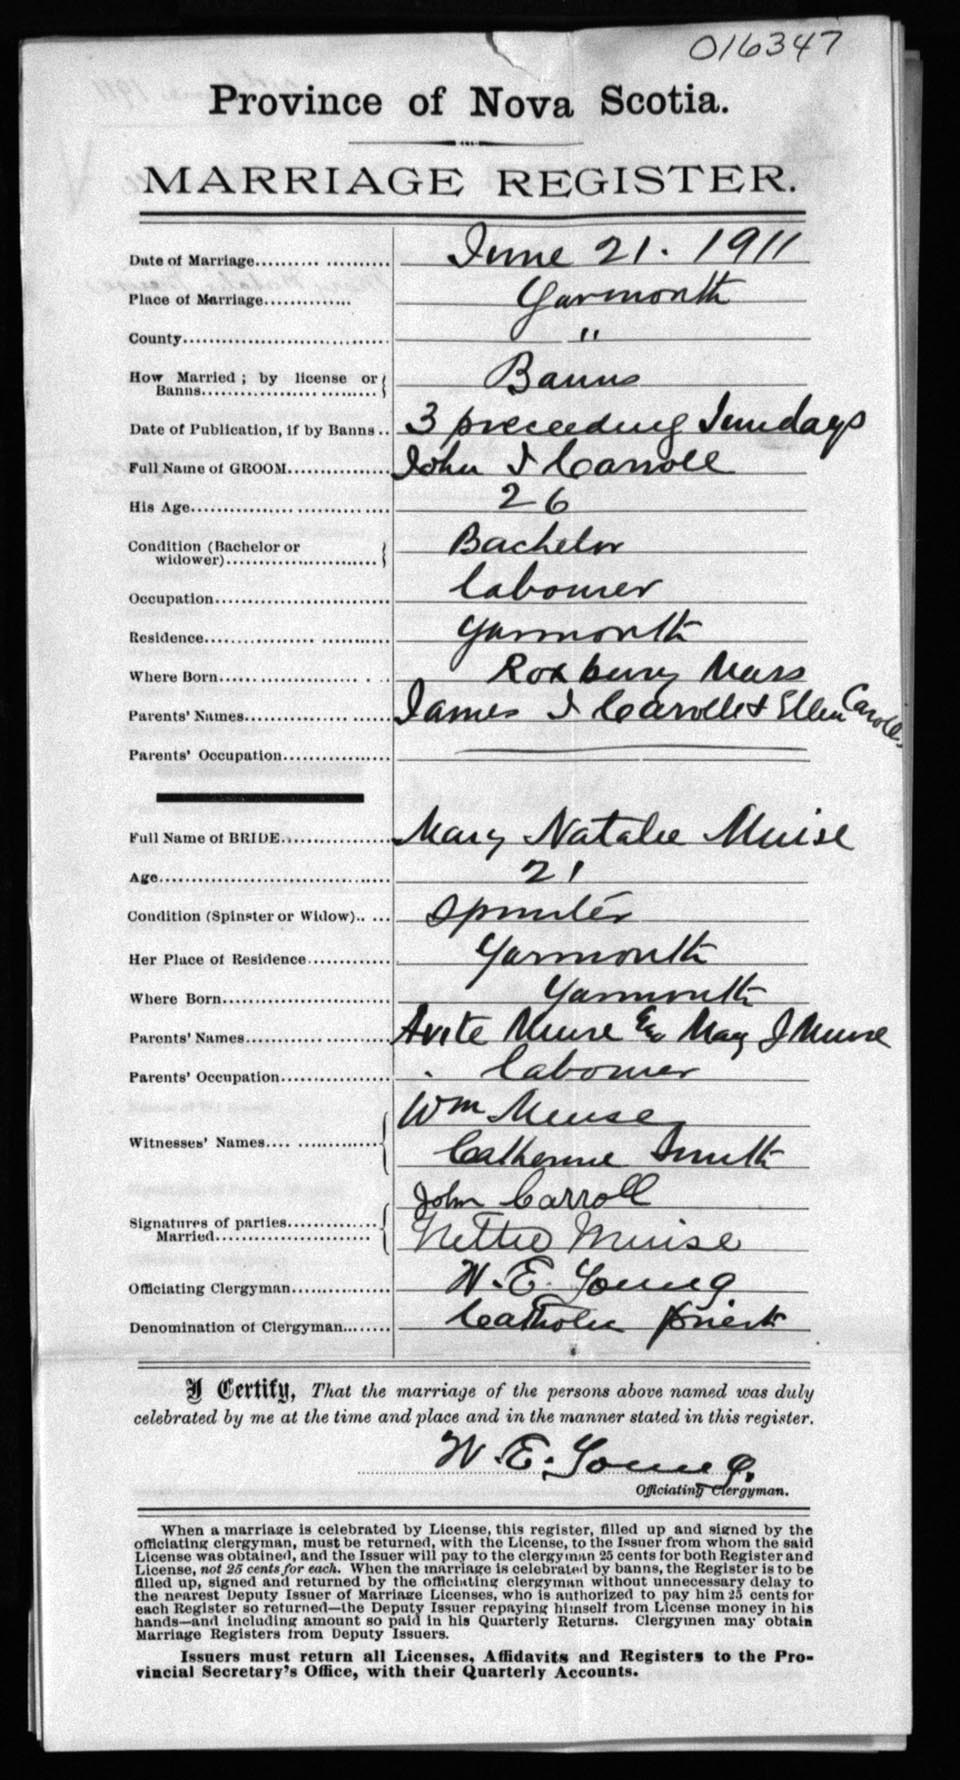 016347
Province of Nova Scotia.
MARRIAGE REGISTER.
Date of Marriage.......... .......... June 21. 1911
Place of Marriage............. Yarmouth
County................................ "
How Married; by license or Banns
Banns.................. .........
Date of Publication, if by Banns .. 3 preceeding Sundays
Full Name of GROOM................ John J Carroll
His Age................ .............. 26
Condition (Bachelor or Bachelor
widower)............ ..........
Occupation........................... Labourer
Residence................. ........... Yarmouth
Where Born...... ........... . .. Roxbury Mass
Parents' Names................ ...... James J Carroll & Ellen Carroll
Parents' Occupation.................
Full Name of BRIDE................. Mary Natalie Muise
Age.................................... 21
Condition (Spinster or Widow).. ... Spinster
Her Place of Residence............. Yarmouth
Where Born.......................... Yarmouth
Parents' Names............... ...... Avite Muise & Mary J Muise
Parents' Occupation................. Labourer
Wm Meuse
Witnesses' Names.... .............
Catherine Smith
John Carroll
Signatures of parties..............
Married........................
Nettie Muise
Officiating Clergyman............... W. E. Young
Denomination of Clergyman........ Catholic priest
I Certify, That the marriage of the persons above named was duly
celebrated by me at the time and place and in the manner stated in this register.
W. E. Young.
Officiating Clergyman.
When a marriage is celebrated by License, this register, filled up and signed by the
officiating clergyman, must be returned, with the License, to the Issuer from whom the said
License was obtained, and the Issuer will pay to the clergyman 25 cents for both Register and
License, not 25 cents for each. When the marriage is celebrated by banns, the Register is to be
filled up, signed and returned by the officiating clergyman without unnecessary delay to
the nearest Deputy Issuer of Marriage Licenses, who is authorized to pay him 25 cents for
each Register so returned—the Deputy Issuer repaying himself from License money in his
hands—and including amount so paid in his Quarterly Returns. Clergymen may obtain
Marriage Registers from Deputy Issuers.
Issuers must return all Licenses, Affidavits and Registers to the Pro-
vincial Secretary's Office, with their Quarterly Accounts.